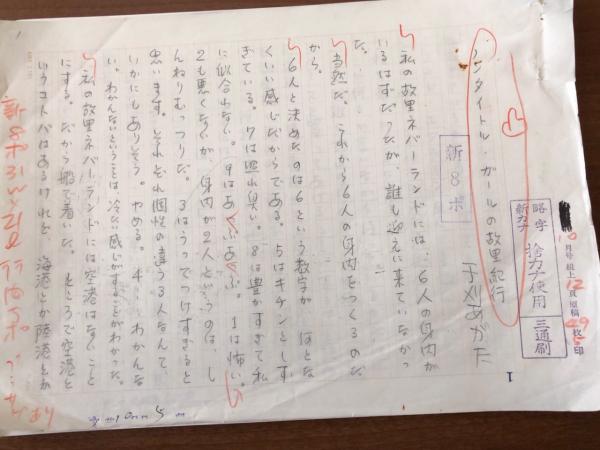 アンタイトル・ガールの故里紀行
干刈あがた
新8ポ
略字
新カナ
拾カナ使用
三通刷
月号
組上
12
頁
原稿
49
枚
印
I
私の故里ネバーランドには、6人の身内が
いるはずだったが、誰も迎えに来ていなかっ
た。
当然だ。これから6人の身内をつくるのだ
から。
6人と決めたのは6という数字が、何とな
くいい感じだからである。5はキチンとしす
ぎている。7は思わせ臭い。8は豊かすぎて私
に似合わない。9はあぐぶあぐぶ。1は怖い。
2も悪くないが、身内が2人というのは、し
んねりむっつりだ。3はうってつけすぎると
思います。それぞれ個性の違う3人なんて、
いかにもありそう。やめる。4、わかんな
い。わかんないということは、冷たい感じがすることがわかった。
私の故里ネバーランドには空港はないこと
にする。だから船で着いた。ところで空港と
いうコトバはあるけれど、海港とか陸港とか
新8ポ31W×21L